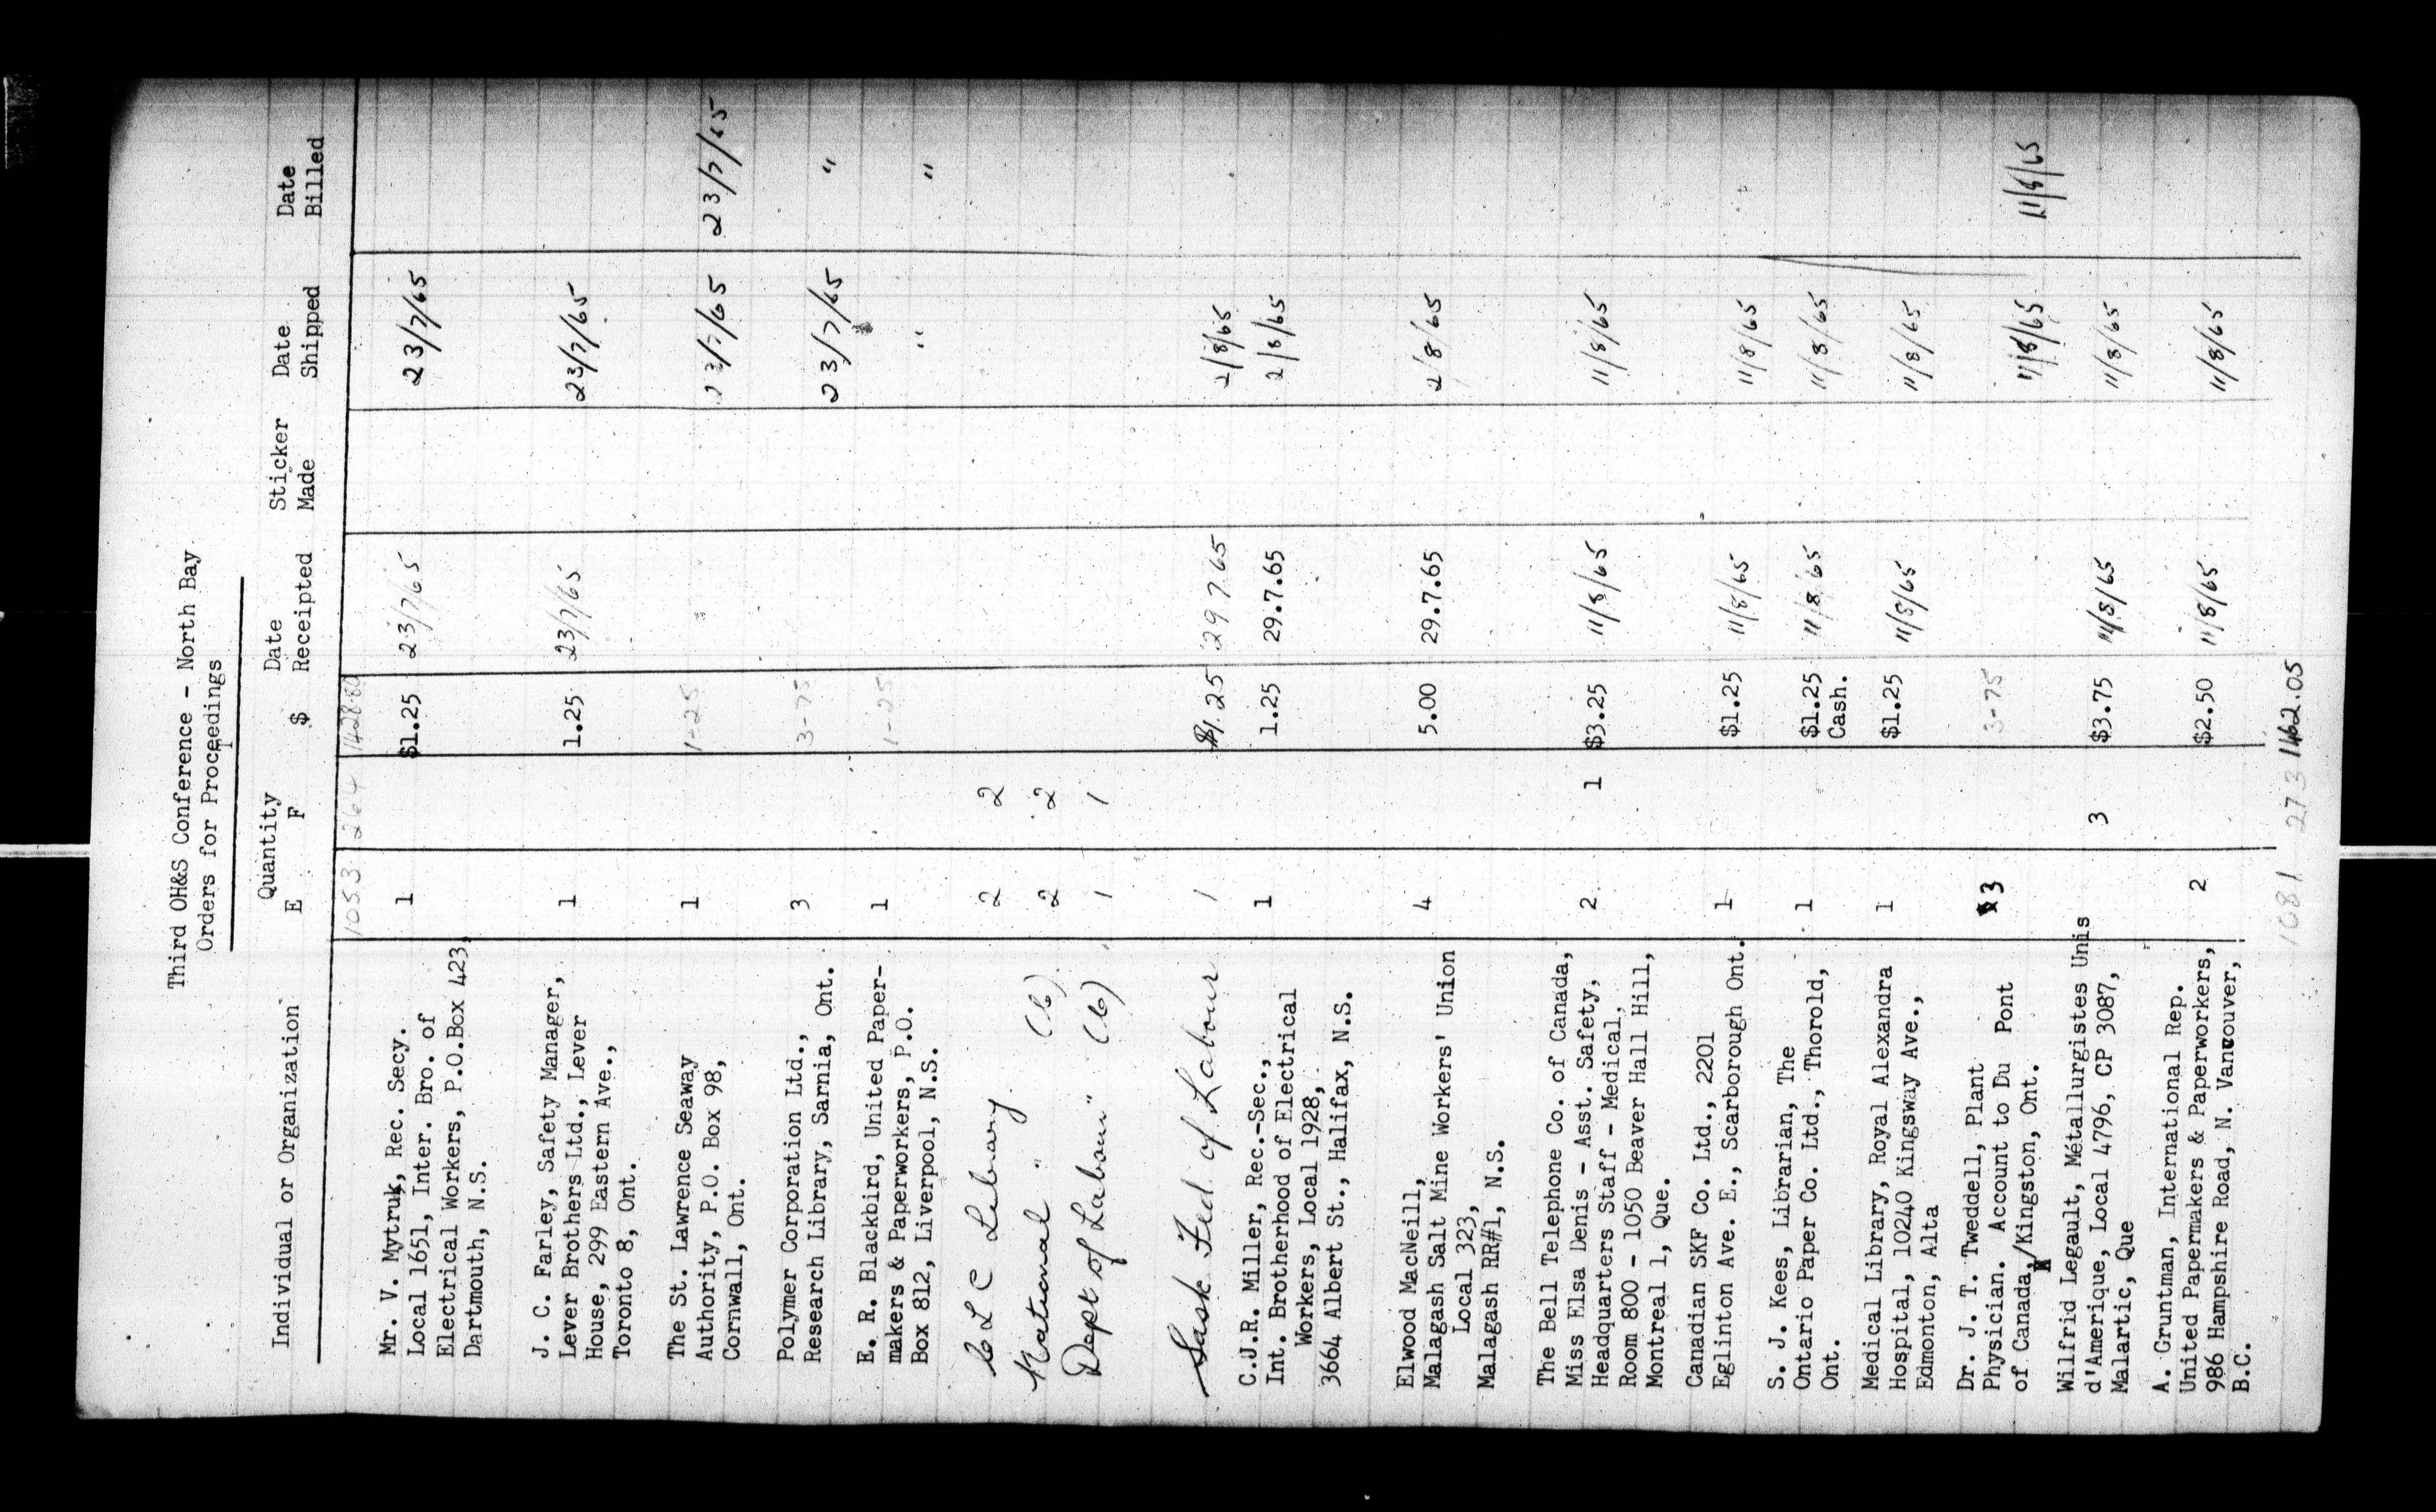 Third OH&S Conference - North Bay
Orders for Proceedings
Individual or Organization Quantity E F $ Date Receipted Sticker Made Date Shipped Date Billed
1053 264 1428.80
Mr. V. Mytruk, Rec. Secy.
Local 1651, Inter. Bro. of 1 $1.25 23/7/65 23/7/65
Electrical Workers, P.O.Box 423,
Dartmouth, N.S.
J. C. Farley, Safety Manager,
Lever Brothers Ltd., Lever 1 1.25 23/7/65 23/7/65
House, 299 Eastern Ave.,
Toronto 8, Ont.
The St. Lawrence Seaway 1 1-25 23/7/65 23/7/65
Authority, P.O. Box 98,
Cornwall, Ont.
Polymer Corporation Ltd., 3 3-75 23/7/65 "
Research Library, Sarnia, Ont.
E. R. Blackbird, United Paper- 1 1-25 " "
makers & Paperworkers, P.O.
Box 812, Liverpool, N.S.
C L C Library 2 2
National " (6) 2 2
Dept of Labour " (6) 1 1
Sask Fed. of Labour 1 $1.25 29 7 65 2/8/65
C.J.R. Miller, Rec.-Sec., 1 1.25 29.7.65 2/8/65
Int. Brotherhood of Electrical
Workers, Local 1928,
3664 Albert St., Halifax, N.S.
Elwood MacNeill,
Malagash Salt Mine Workers' Union 4 5.00 29.7.65 2/8/65
Local 323,
Malagash RR#1, N.S.
The Bell Telephone Co. of Canada,
Miss Elsa Denis - Asst. Safety, 2 1 $3.25 11/8/65 11/8/65
Headquarters Staff - Medical,
Room 800 - 1050 Beaver Hall Hill,
Montreal 1, Que.
Canadian SKF Co. Ltd., 2201
Eglinton Ave. E., Scarborough Ont. 1 $1.25 11/8/65 11/8/65
S. J. Kees, Librarian, The
Ontario Paper Co. Ltd., Thorold, 1 $1.25 11/8/65 11/8/65
Ont. Cash.
Medical Library, Royal Alexandra 1 $1.25 11/8/65 11/8/65
Hospital, 10240 Kingsway Ave.,
Edmonton, Alta
Dr. J. T. Tweddell, Plant
Physician. Account to Du Pont 3 3-75 11/8/65 11/8/65
of Canada,/Kingston, Ont.
Wilfrid Legault, Métallurgistes Unis
d'Amerique, Local 4796, CP 3087, 3 $3.75 11/8/65 11/8/65
Malartic, Que
A. Gruntman, International Rep.
United Papermakers & Paperworkers, 2 $2.50 11/8/65 11/8/65
986 Hampshire Road, N. Vancouver,
B.C.
1081 273 1462.05